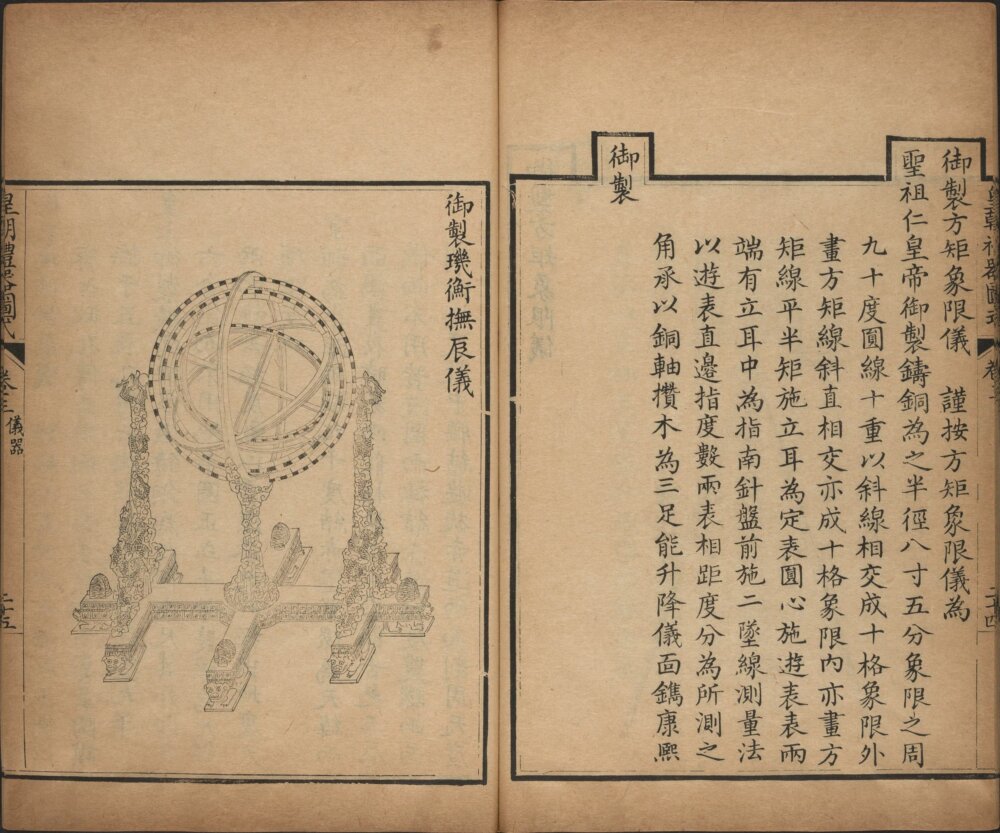 御製方矩象限儀　謹按方矩象限儀為
聖祖仁皇帝御製鑄銅為之半徑八寸五分象限之周
九十度圓線十重以斜線相交成十格象限外
畫方矩線斜直相交亦成十格象限內亦畫方
矩線平半矩施立耳為定表圓心施遊表表兩
端有立耳中為指南針盤前施二墜線測量法
以遊表直邊指度數兩表相距度分為所測之
角承以銅軸攢木為三足能升降儀面鐫康熙
御製
御製璣衡撫辰儀
皇朝禮器圖式
卷三
儀器
二十五